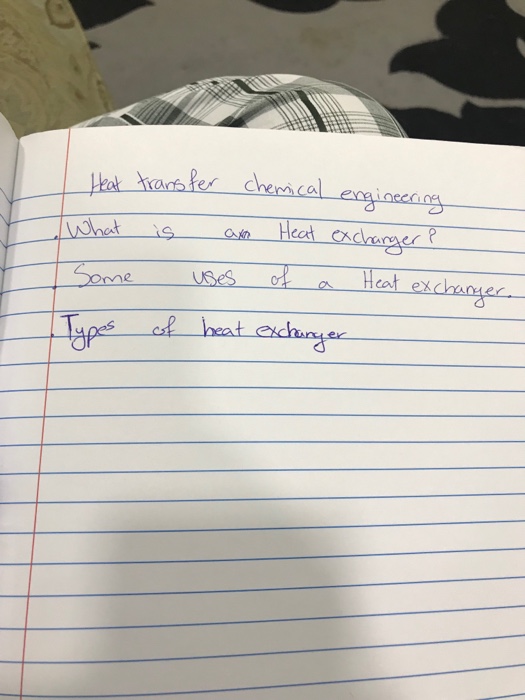 Heat transfer chemical engineering
. What is a Heat exchanger?
. Some uses of a Heat exchanger.
. Types of heat exchanger